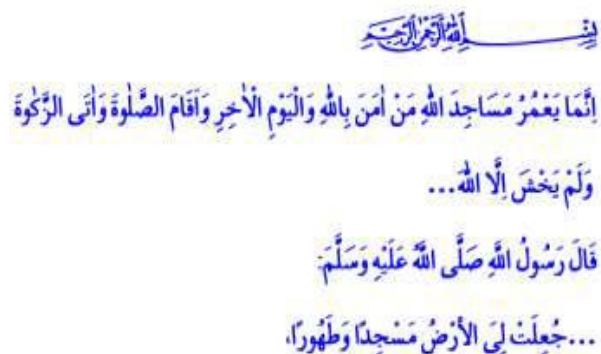 بِسْمِ اللّٰهِ الرَّحْمٰنِ الرَّحِيمِ
اِنَّمَا يَعْمُرُ مَسَاجِدَ اللّٰهِ مَنْ اٰمَنَ بِاللّٰهِ وَالْيَوْمِ الْاٰخِرِ وَاَقَامَ الصَّلٰوةَ وَاٰتَى الزَّكٰوةَ
وَلَمْ يَخْشَ اِلَّا اللّٰهَ...
قَالَ رَسُولُ اللَّهِ صَلَّى اللَّهُ عَلَيْهِ وَسَلَّمَ:
...جُعِلَتْ لِيَ الأَرْضُ مَسْجِدًا وَطَهُورًا،